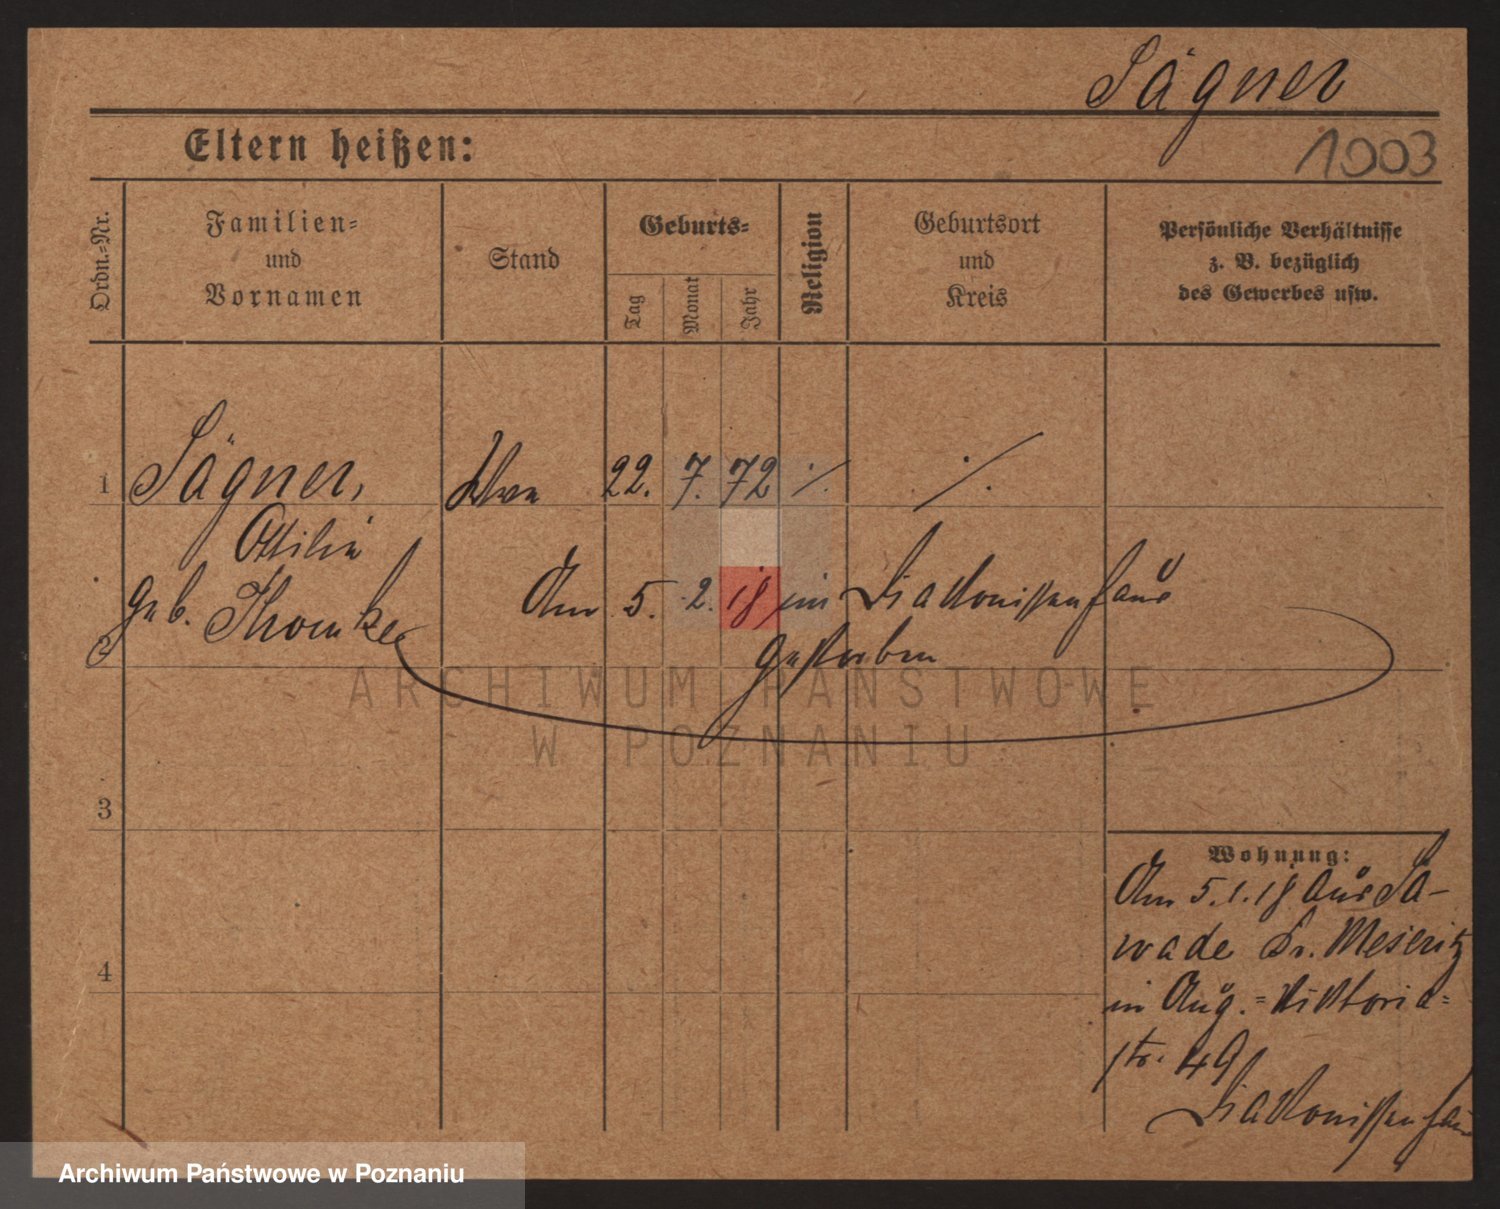 Sägner
Eltern heißen:
1003
Ordn.-Nr.
Familien-
und
Vornamen
Stand
Geburts-
Tag
Monat
Jahr
Religion
Geburtsort
und
Kreis
Persönliche Verhältnisse
z. B. bezüglich
des Gewerbes usw.
1 Sägner, 22. 7. 72 ./. ./.
Ottilie
geb. Thomke
Am 5. 2. 18 im Diakonissenhaus
2
gestorben
ARCHIWUM PAŃSTWOWE
W POZNANIU
3
Wohnung:
Am 5.1.18 aus Sa-
wade Kr. Meseritz
4
in Aug.=Viktoria=
str. 49
Diakonissenhaus
Archiwum Państwowe w Poznaniu